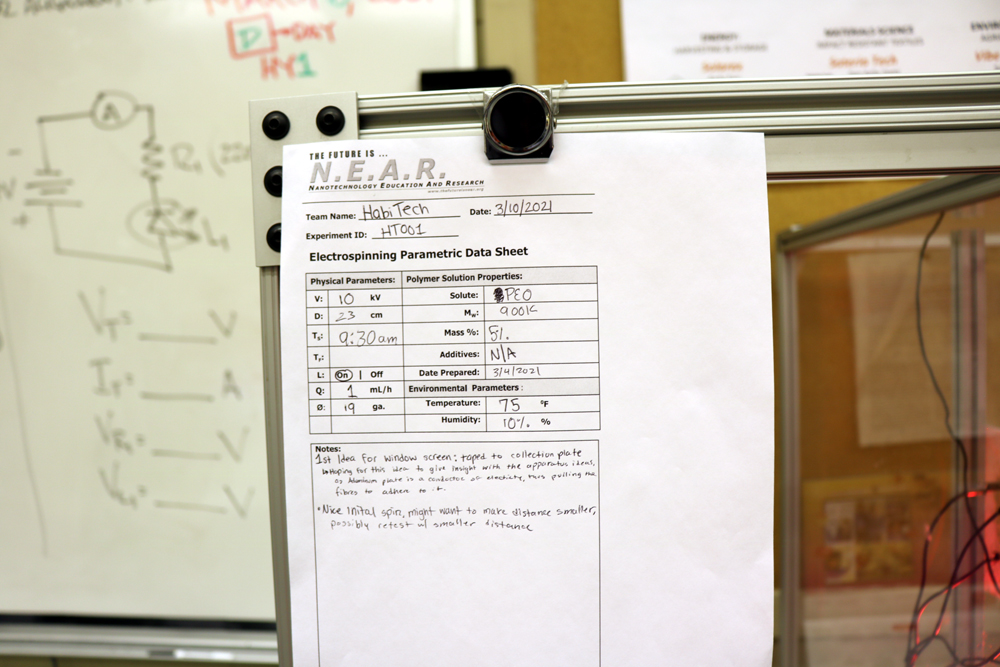 D → DAY
HY1
A
R₁
L₁
V
A
V
V
ENERGY
MATERIALS SCIENCE
THE FUTURE IS ...
N.E.A.R.
NANOTECHNOLOGY EDUCATION AND RESEARCH
Team Name: HabiTech Date: 3/10/2021
Experiment ID: HT001
Electrospinning Parametric Data Sheet
Physical Parameters: Polymer Solution Properties:
V: 10 kV Solute: PEO
D: 23 cm Mw: 900K
Ts: 9:30am Mass %: 5%
TF: Additives: N/A
L: On | Off Date Prepared: 3/4/2021
Q: 1 mL/h Environmental Parameters:
Ø: 19 ga. Temperature: 75 °F
Humidity: 10% %
Notes:
1st Idea for window screen: taped to collection plate
↳ Hoping for this idea to give insight with the apparatus ideas,
as Aluminum plate is a conductor of electicity, thus pulling the
fibres to adhere to it.
•Nice Inital spin, might want to make distance smaller,
possibly retest w/ smaller distance